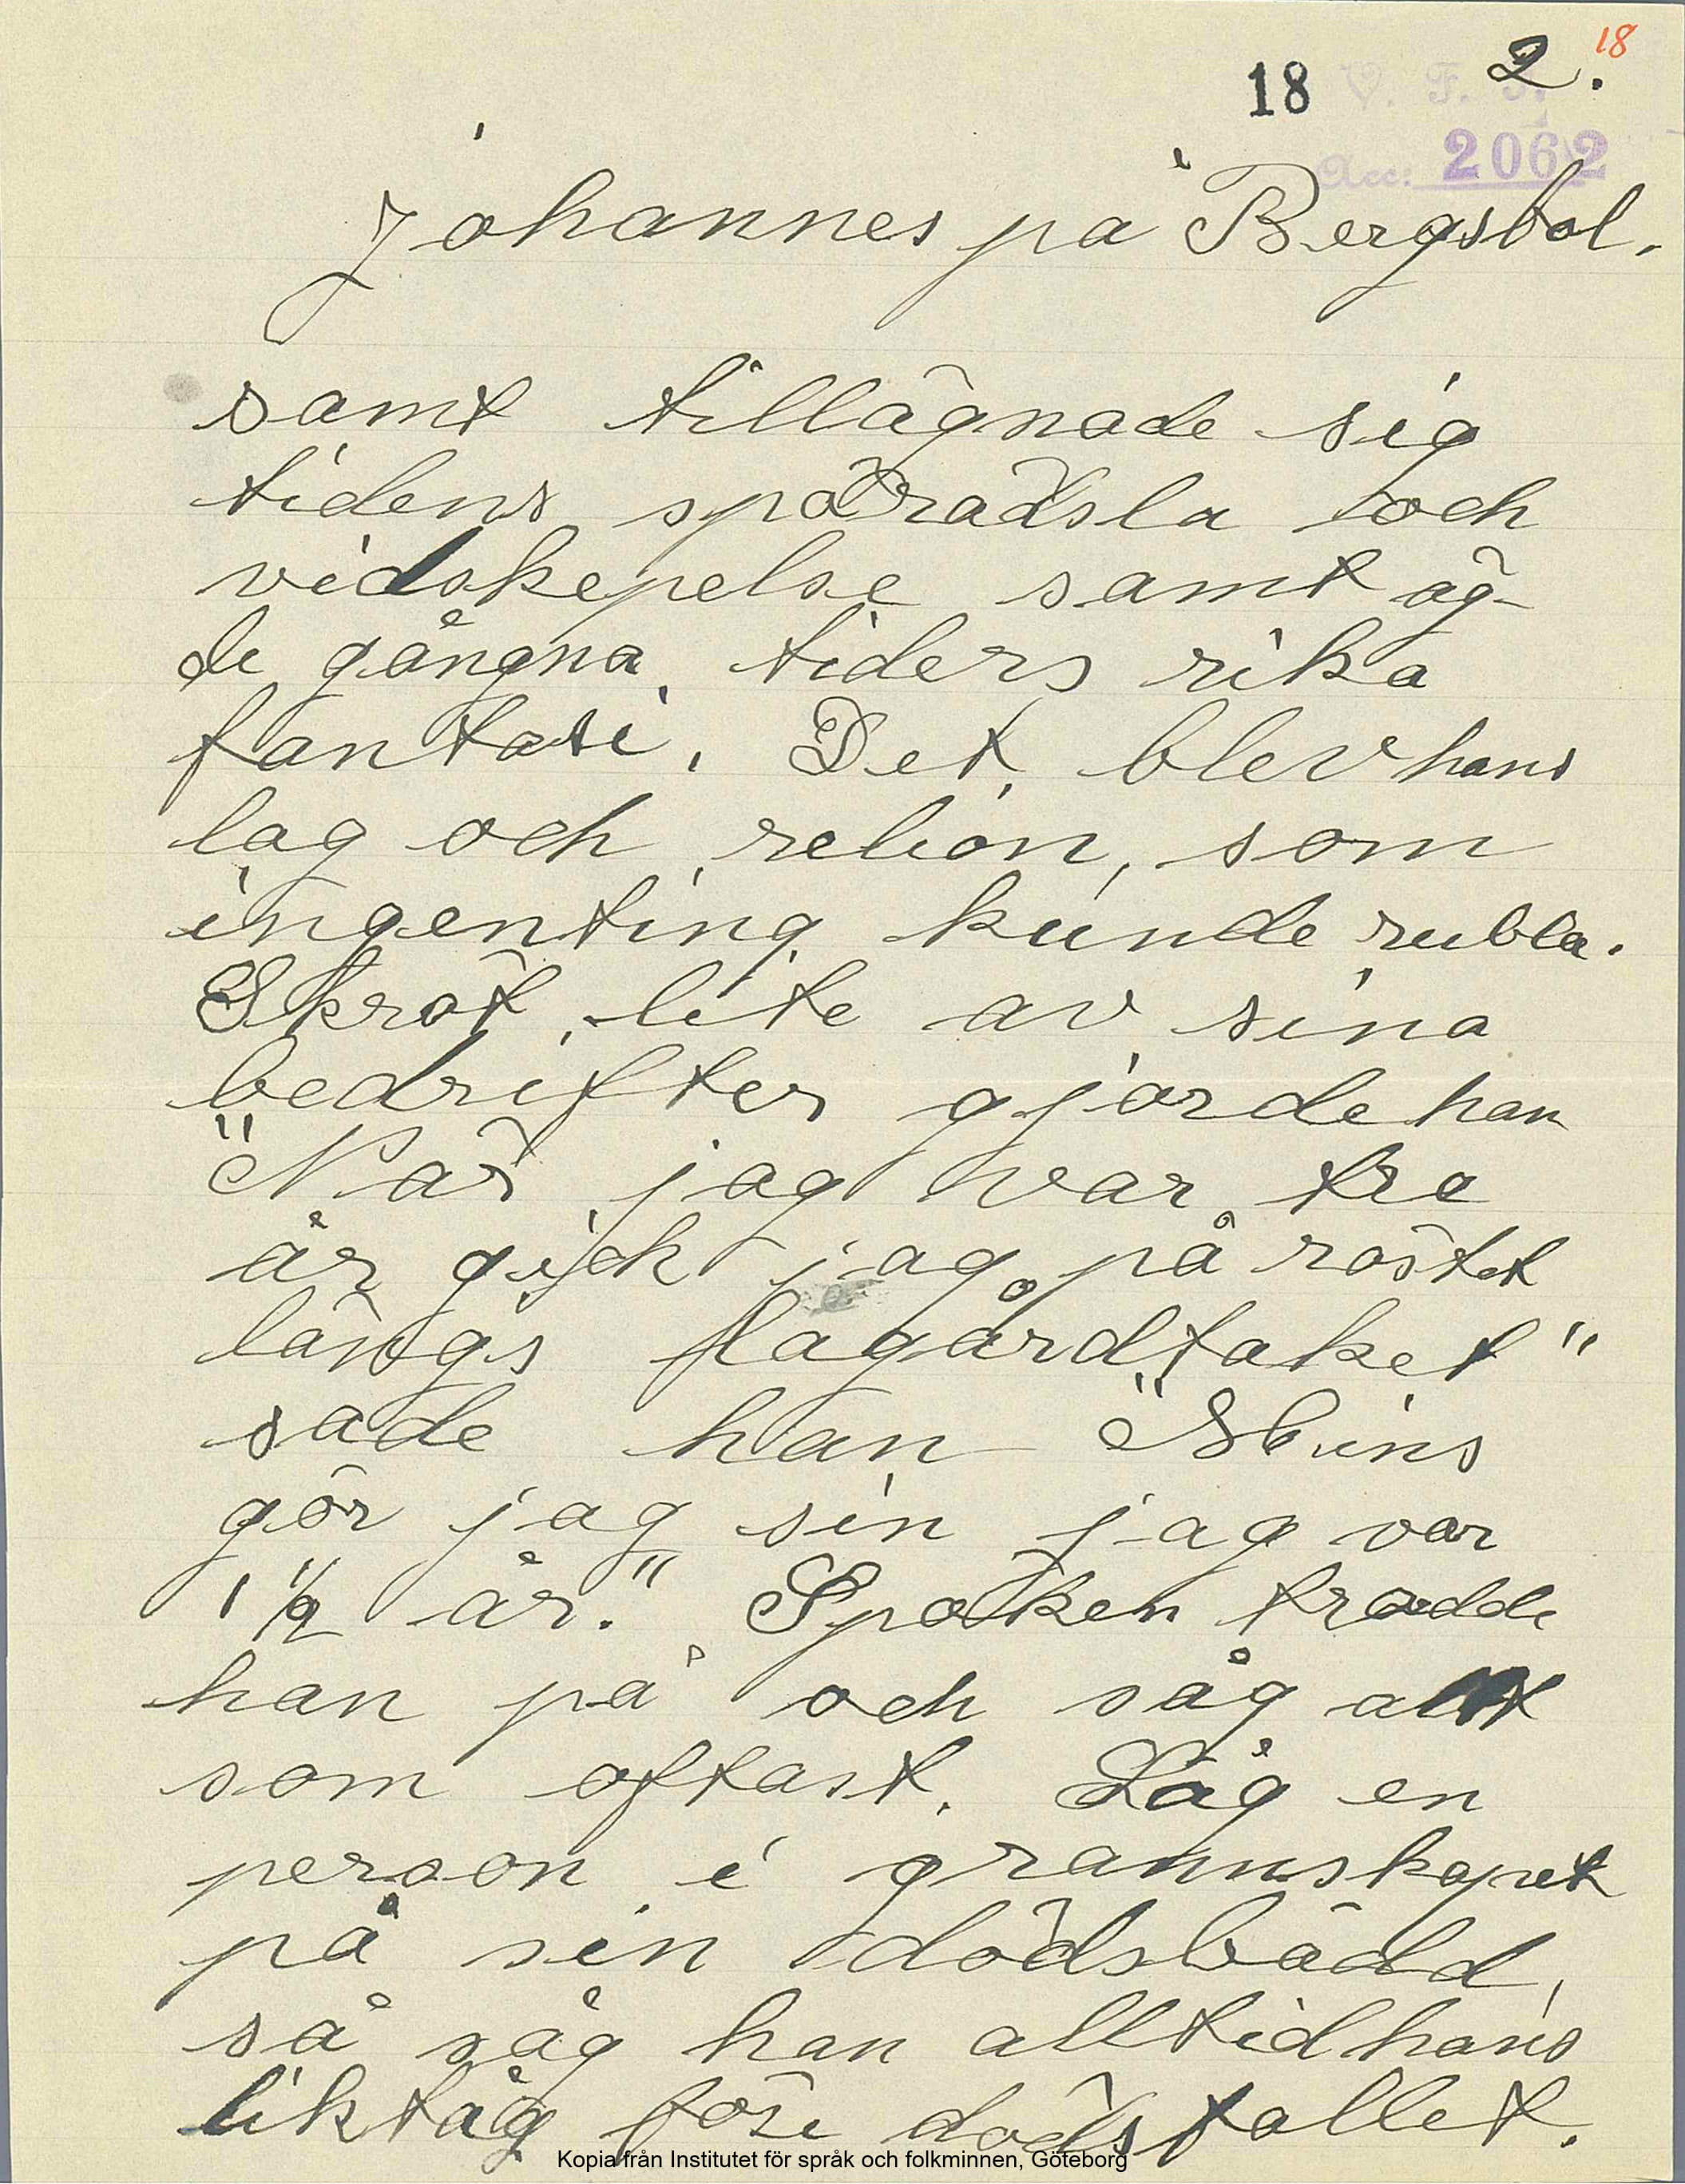 18 2. 18
V. F. F.
Acc: 2062
Johannes på Bergsbol.
samt tillägnade sig
tidens spörädsla och
vidskepelse samt äg-
de gångna tiders rika
fantasi. Det blev hans
lag och relion, som
ingenting kunde rubba.
Skröt lite av sina
bedrifter gjorde han
"När jag var tre
år gick jag på röstet
längs flagårdtaket"
sade han "Mins
gör jag sin jag var
1 1/2 år." Spöken trodde
han på och såg allt
som oftast. Låg en
person i grannskapet
på sin dödsbädd,
så såg han alltid hans
liktåg före dödsfallet.
Kopia från Institutet för språk och folkminnen, Göteborg